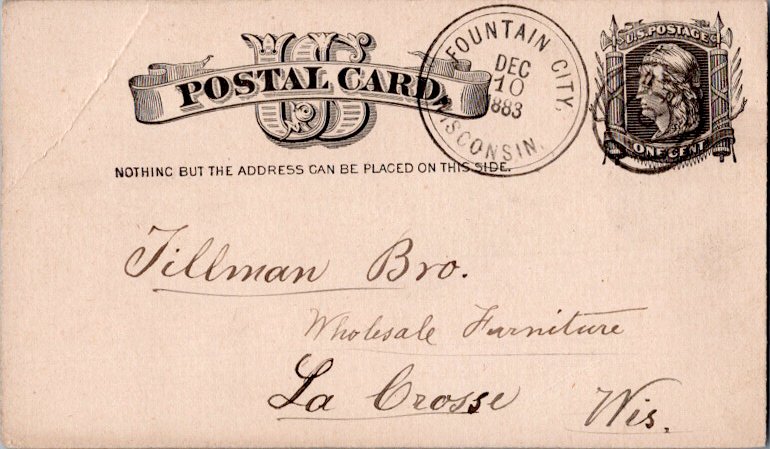 US
POSTAL CARD
NOTHING BUT THE ADDRESS CAN BE PLACED ON THIS SIDE.
FOUNTAIN CITY,
DEC
10
1883
WISCONSIN.
U.S. POSTAGE
ONE CENT
Tillman Bro.
Wholesale Furniture
La Crosse Wis.